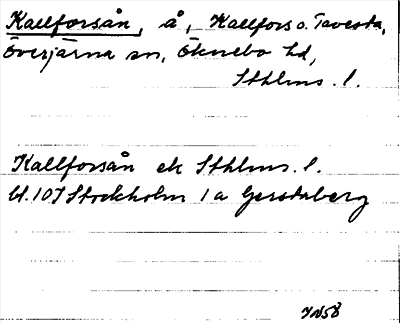 Kallforsån, å, Kallfors o. Tavesta,
Överjärna sn, Öknebo hd,
Sthlms. l.
Kallforsån ek Sthlms. l.
bl. 10I Stockholm 1a Gerstaberg